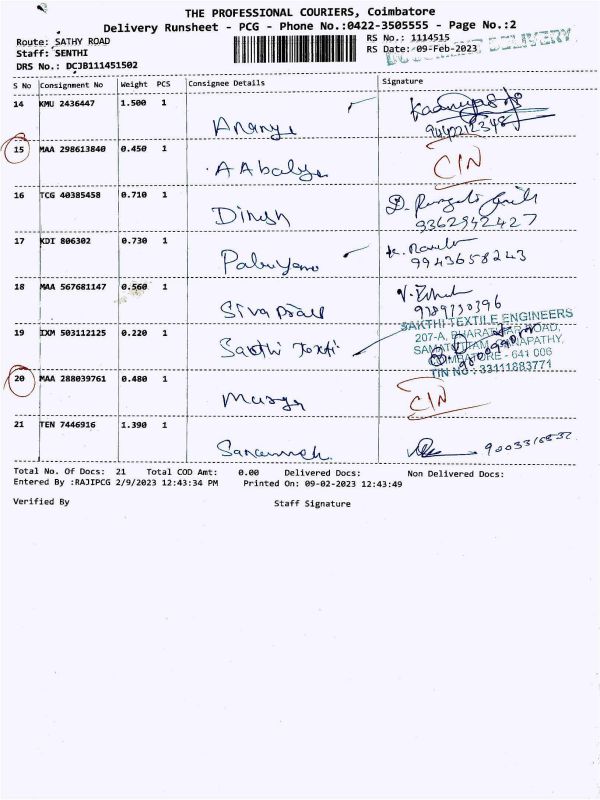 THE PROFESSIONAL COURIERS, Coimbatore
Delivery Runsheet - PCG - Phone No.:0422-3505555 - Page No.:2
Route: SATHY ROAD
RS No.: 1114515
Staff: SENTHI
RS Date: 09-Feb-2023
DOCUMENT DELIVERY
DRS No.: DCJB111451502
S No Consignment No Weight PCS Consignee Details Signature
14 KMU 2436447 1.500 1
15 MAA 298613840 0.450 1 CIN
16 TCG 40385458 0.710 1 Dinesh
9362942427
17 KDI 806302 0.730 1
9943658243
18 MAA 567681147 0.560 1
9789730396
19 IXM 503112125 0.220 1 Sakthi
SAKTHI TEXTILE ENGINEERS
207-A, BHARATHIAR ROAD,
COIMBATORE - 641 006
TIN NO : 33111883771
20 MAA 288039761 0.480 1 CIN
21 TEN 7446916 1.390 1
Total No. Of Docs: 21 Total COD Amt: 0.00 Delivered Docs: Non Delivered Docs:
Entered By :RAJIPCG 2/9/2023 12:43:34 PM Printed On: 09-02-2023 12:43:49
Verified By Staff Signature